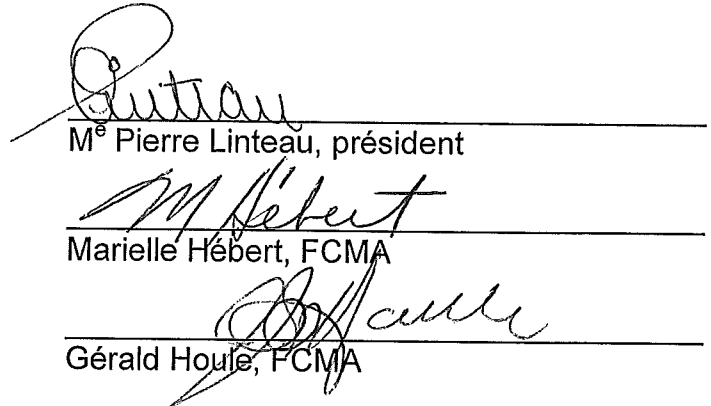 Linteau
Mᵉ Pierre Linteau, président
M Hébert
Marielle Hébert, FCMA
Gérald Houle, FCMA